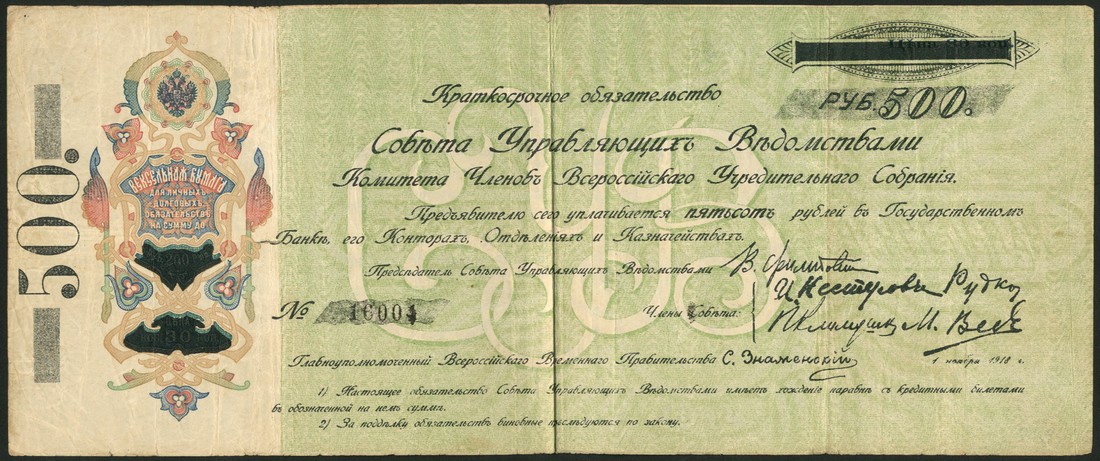 500.
ВЕКСЕЛЬНАЯ БУМАГА
ДЛЯ ЛИЧНЫХЪ
ДОЛГОВЫХЪ
ОБЯЗАТЕЛЬСТВЪ
НА СУММУ ДО
200
ЦѢНА
30
Цѣна 30 коп.
РУБ. 500.
Краткосрочное обязательство
Совѣта Управляющихъ Вѣдомствами
Комитета Членовъ Всероссійскаго Учредительнаго Собранія.
Предъявителю сего уплачивается пятьсотъ рублей въ Государственномъ
Банкѣ, его Конторахъ, Отдѣленіяхъ и Казначействахъ.
Предсѣдатель Совѣта Управляющихъ Вѣдомствами
№ 16001
Члены Совѣта:
И. Нестеровъ Рудко
П. Климушк М. Вед
Главноуполномоченный Всероссійскаго Временнаго Правительства С. Знаменскій
1 ноября 1918 г.
1) Настоящее обязательство Совѣта Управляющихъ Вѣдомствами имѣетъ хожденіе наравнѣ съ кредитными билетами
въ обозначенной на немъ суммѣ.
2) За поддѣлку обязательствъ виновные преслѣдуются по закону.